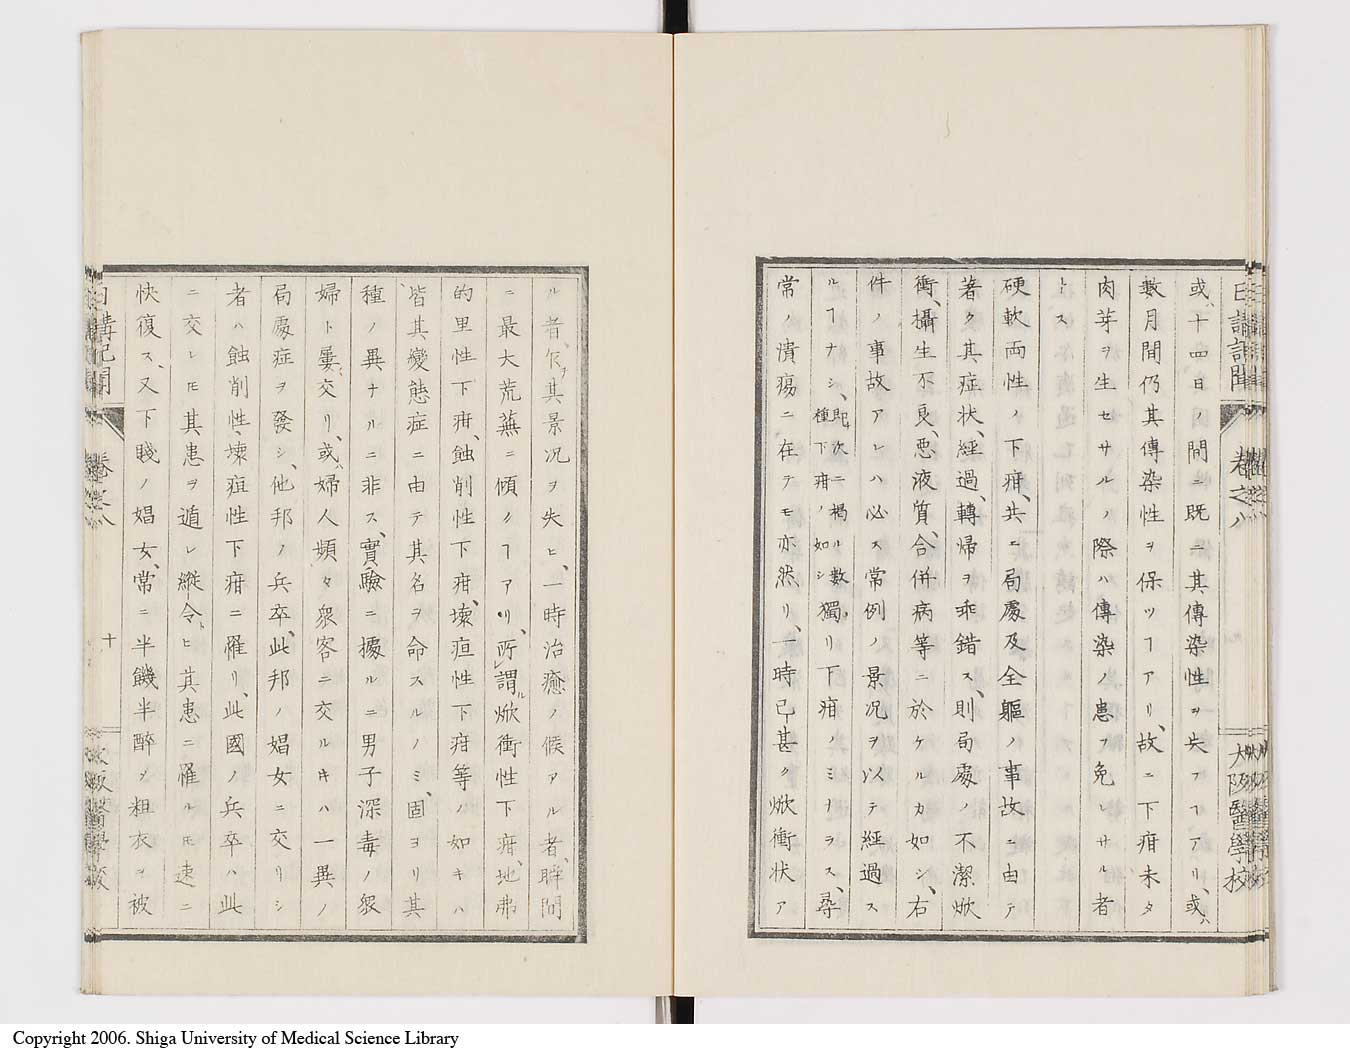 日講記聞 卷之八 大阪醫學校
或、十四日ノ間ニ既ニ其傳染性ヲ失フヿアリ、或ハ
數月間仍其傳染性ヲ保ツヿアリ、故ニ下疳未タ
肉芽ヲ生セサルノ際ハ傳染ノ患ヲ免レサル者
トス
硬軟両性ノ下疳、共ニ局處及全軀ノ事故ニ由テ
著ク其症状、經過、轉帰ヲ乖錯ス、則局處ノ不潔焮
衝、攝生不良、悪液質、合併病等ニ於ケルカ如シ、右
件ノ事故アレハ必ス常例ノ景况ヲ以テ經過ス
ルヿナシ、即次ニ掲ル數種下疳ノ如シ獨リ下疳ノミナラス、尋
常ノ潰瘍ニ在テモ亦然リ、一時已甚ク焮衝状ア
ル者、乍ヲ其景况ヲ失ヒ、一時治癒ノ候アル者、瞬間
ニ最大荒蕪ニ傾クヿアリ、所謂ル焮衝性下疳、地弗
的里性下疳、蝕削性下疳、壊疽性下疳等ノ如キハ
皆其變態症ニ由テ其名ヲ命スルノミ、固ヨリ其
種ノ異ナルニ非ス、實驗ニ據ルニ男子深毒ノ衆
婦ト屢交リ、或ハ婦人頻々衆客ニ交ルキハ一異ノ
局處症ヲ發シ、他邦ノ兵卒、此邦ノ娼女ニ交リシ
者ハ蝕削性、壊疽性下疳ニ罹リ、此國ノ兵卒ハ此
ニ交レモ其患ヲ遁レ縱令ヒ其患ニ罹ルモ速ニ
快復ス、又下賤ノ娼女、常ニ半饑半醉メ粗衣ヲ被
日講記聞 卷之八 十 大阪醫學校
Copyright 2006. Shiga University of Medical Science Library